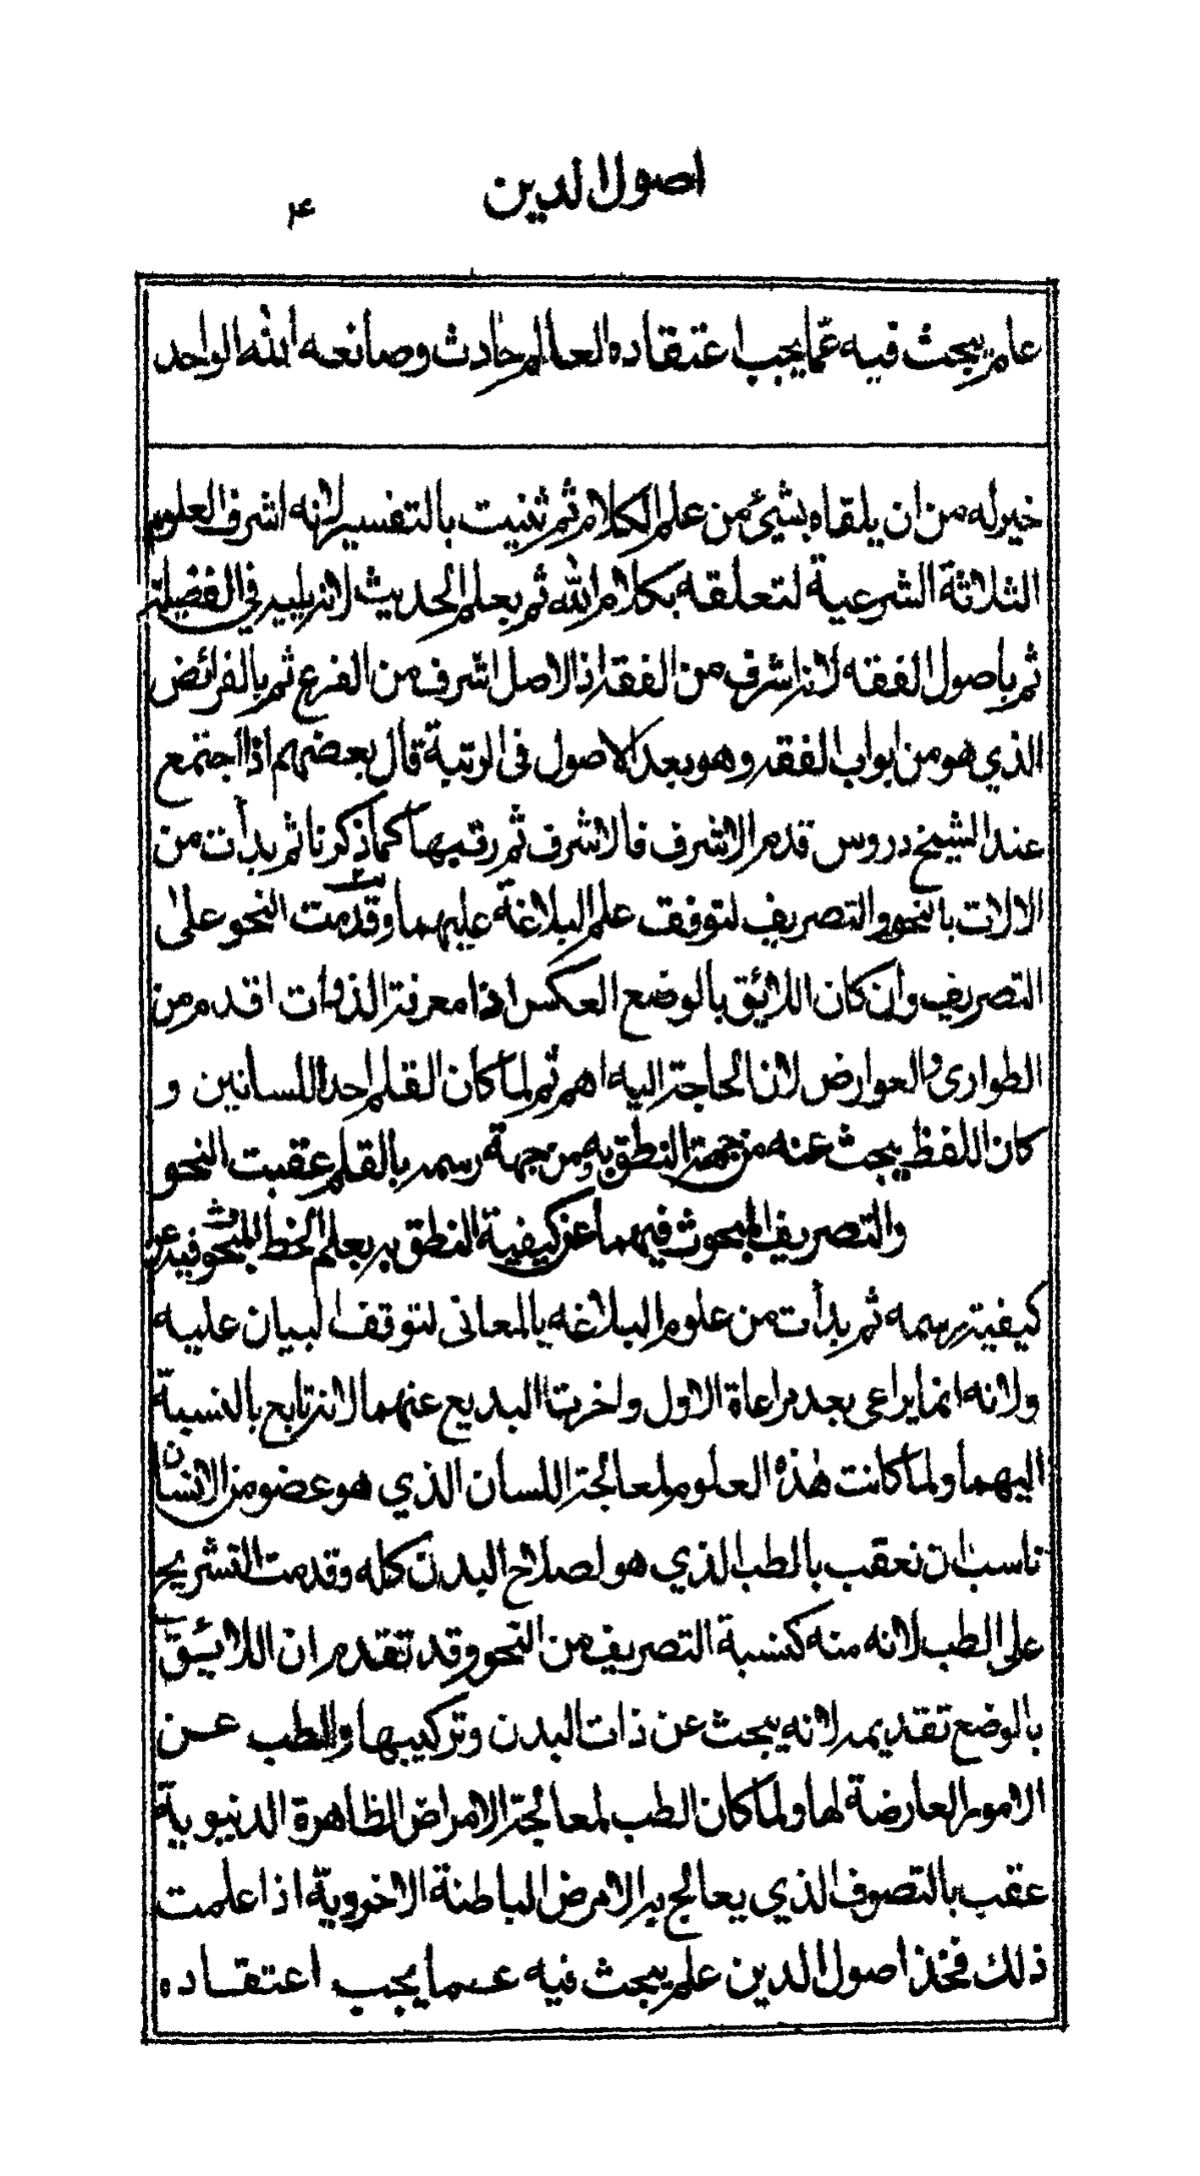 اصول الدين
۴
علم يبحث فيه عمّا يجب اعتقاده العالم حادث وصانعه الله الواحد
خير له من ان يلقاه بشيئ من علم الكلام ثم ثنيت بالتفسير لانه اشرف العلوم
الثلاثة الشرعية لتعلقه بكلام الله ثم بعلم الحديث لانه يليه في الفضيلة
ثم باصول الفقه لانه اشرف من الفقه اذ الاصل اشرف من الفرع ثم بالفرائض
الذي هو من ابواب الفقه وهو بعد الاصول فى الرتبة قال بعضهم اذا اجتمع
عند الشيخ دروس قدم الاشرف فالاشرف ثم رتبها كما ذكرنا ثم بدأت من
الالات بالنحو والتصريف لتوقف علم البلاغة عليهما وقدمت النحو على
التصريف وان كان اللائق بالوضع العكس اذا معرفة الذوات اقدم من
الطوارى والعوارض لان الحاجة اليه اهم ثم لما كان القلم احد اللسانين و
كان اللفظ يبحث عنه من جهة النطق به ومن جهة رسمه بالقلم عقبت النحو
والتصريف المبحوث فيهما عن كيفية النطق به بعلم الخط المبحوث فيه عن
كيفية رسمه ثم بدأت من علوم البلاغه بالمعانى لتوقف البيان عليه
ولانه انما يراعى بعد مراعاة الاول واخرت البديع عنهما لانه تابع بالنسبة
اليهما ولما كانت هذه العلوم لمعالجة اللسان الذي هو عضو من الانسان
ناسب ان نعقب بالطب الذي هو لصلاح البدن كله وقدمت التشريح
على الطب لانه منه كنسبة التصريف من النحو وقد تقدم ان اللائق
بالوضع تقديمه لانه يبحث عن ذات البدن وتركيبها والطب عن
الامور العارضة لها ولما كان الطب لمعالجة الامراض الظاهرة الدنيوية
عقب بالتصوف الذي يعالج به الامرض الباطنة الاخروية اذا علمت
ذلك فخذ اصول الدين علم يبحث فيه عما يجب اعتقاده